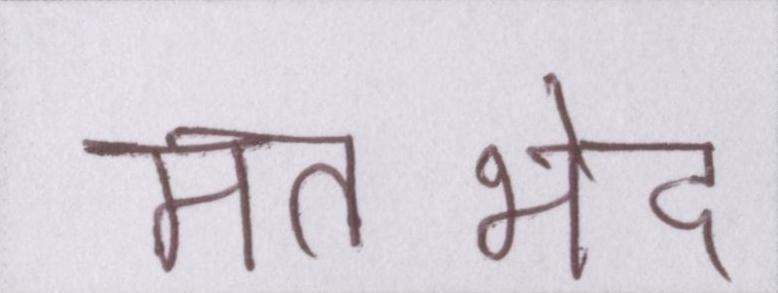 मत भेद